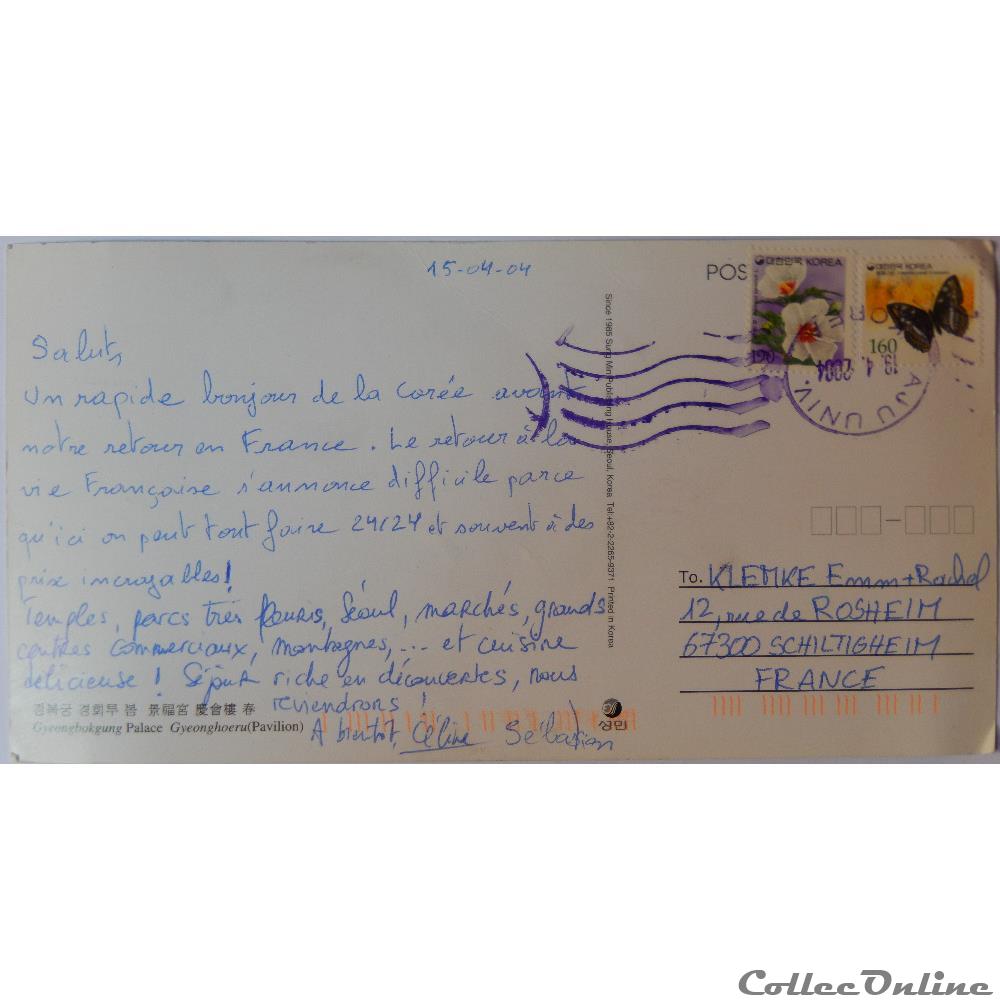 15-04-04
Salut,
Un rapide bonjour de la Corée avant
notre retour en France. Le retour à la
vie Française s'annonce difficile parce
qu'ici on peut tout faire 24/24 et souvent à des
prix incroyables!
Temples, parcs très fleuris, Séoul, marchés, grands
centres commerciaux, montagnes, ... et cuisine
délicieuse! Séjour riche en découvertes, nous
reviendrons!
A bientôt, Céline Sébastian
경복궁 경회루 봄 景福宮 慶會樓 春
Gyeongbokgung Palace Gyeonghoeru(Pavilion)
Since 1985 Sung Min Publishing House, Seoul, Korea Tel:+82-2-2265-9371 Printed in Korea
성민
POS
대한민국 KOREA
190
대한민국 KOREA
160
AJU UNIV.
19.4.2004
KOREA
To. KLEMKE Emm+Rachel
12, rue de ROSHEIM
67300 SCHILTIGHEIM
FRANCE
CollecOnline